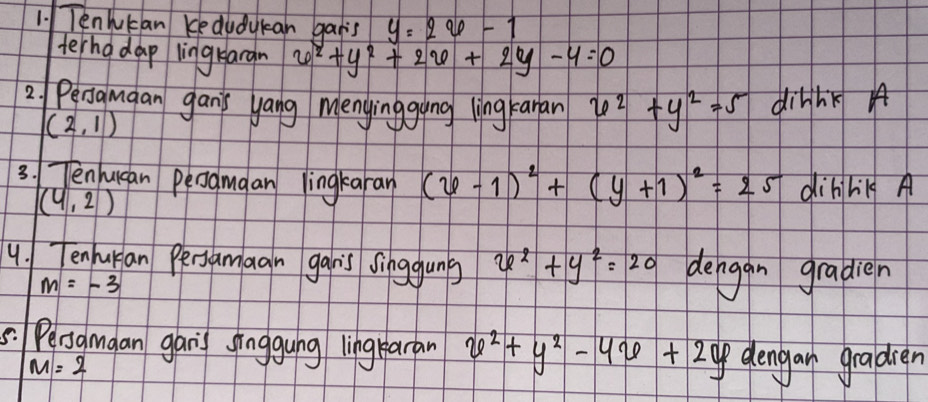 1. Tentukan kedudukan garis y = 2x - 1
terhadap lingkaran x² + y² + 2x + 2y - 4 = 0
2. Persamaan garis yang menyinggung lingkaran x² + y² = 5 dititik A
(2,1)
3. Tentukan persamaan lingkaran (x - 1)² + (y + 1)² = 25 dititik A
(4,2)
4. Tentukan Persamaan garis singgung x² + y² = 20 dengan gradien
m = -3
5. Persamaan garis singgung lingkaran x² + y² - 4x + 2y dengan gradien
m = 2